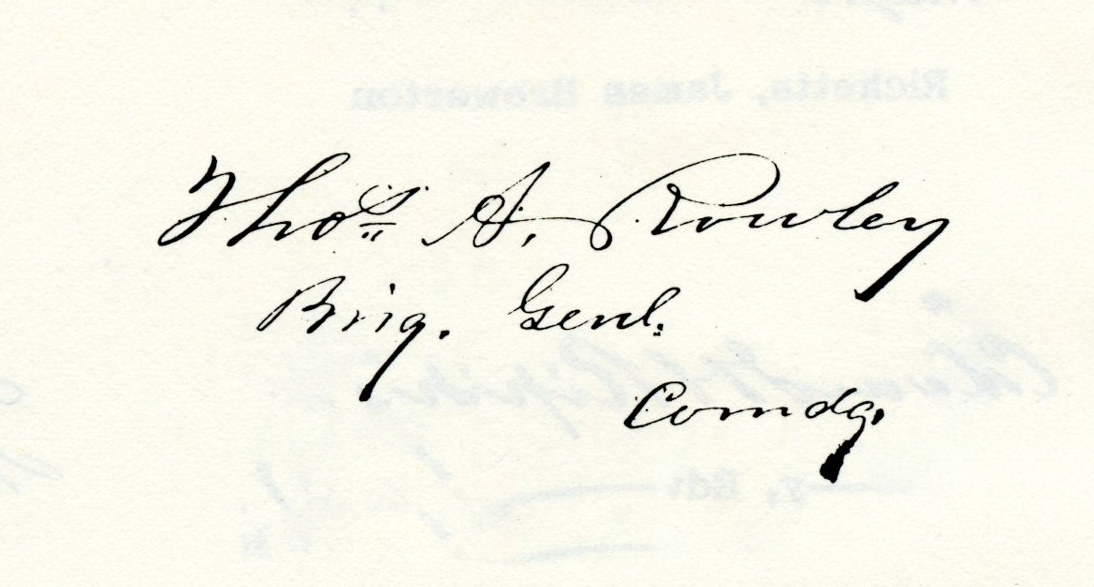 Thos. A. Rowley
Brig. Genl.
Comdg.